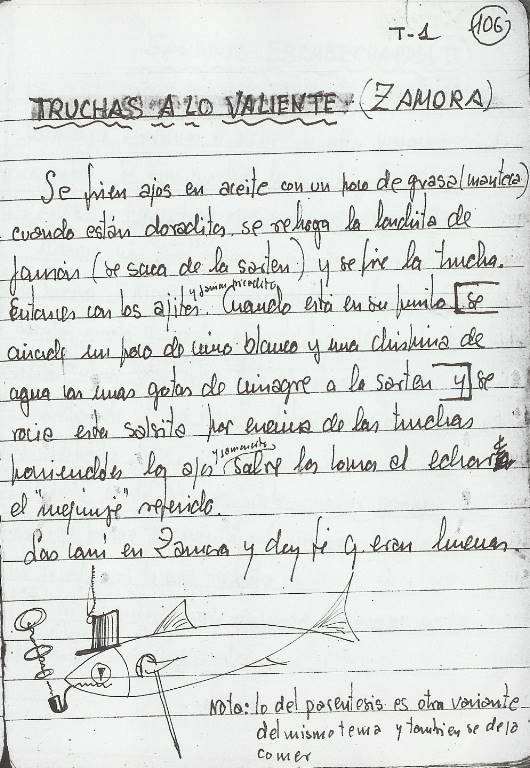 T-1 106
TRUCHAS A LO VALIENTE (ZAMORA)
Se frien ajos en aceite con un poco de grasa (manteca)
cuando están doraditos, se rehoga la lonchita de
jamón (se saca de la sarten) y se frie la trucha.
Entonces con los ajitos y jamon picadito Cuando esta en su punto [se
añade un poco de vino blanco y una chispina de
agua con unas gotas de vinagre a la sarten y] se
rocia esta salsita por encima de las truchas
poniendoles los ajos y jamoncito sobre los lomos al echar
el "mejunje" referido.
Las comi en Zamora y doy fé q. eran buenas.
Nota: lo del parentesis es otra variante
del mismo tema y tambien se deja
comer